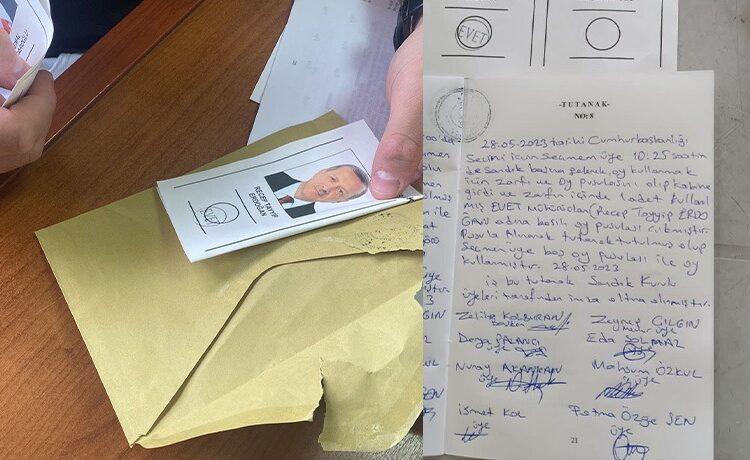 RECEP TAYYİP
ERDOĞAN
EVET
EVET
-TUTANAK-
NO: 8
28.05.2023 tarihi Cumhurbaşkanlığı
Seçimi için seçmen üye 10:25 saatin
de sandık başına gelerek, oy kullanmak
için zarfı ve oy pusulasını alıp kabine
girdi ve zarfın içinde 1 adet kullanıl
mış EVET mühürü olan (Recep Tayyip ERDO
GAN adına basılı oy pusulası çıkmıştır.
tutanak tutulmuş olup
Seçmen üye boş oy pusulası ile oy
kullanmıştır. 28.05.2023
iş bu tutanak Sandık Kurulu
üyeleri tarafından imza altına alınmıştır.
Zeliha KOLBURAN Zeynep ÇILGIN
başkan memur üye
Derya YALANCI Eda SOLMAZ
üye üye
Nuray Mahsum ÖZKUL
üye üye
İsmet KOL Fatma Özge ŞEN
üye üye
21